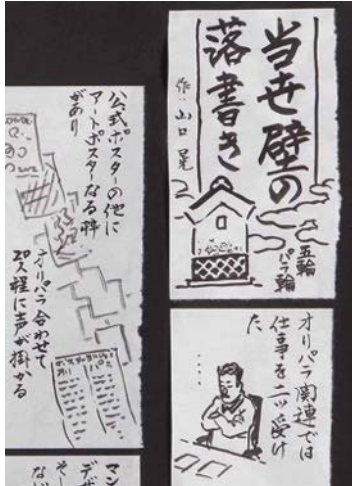 当世壁の
落書き
作・山口 晃
五輪
パラ輪
オリパラ関連では
仕事を二ツ受け
た
…
公式ポスターの他に
アートポスターなる枠
があり
オリパラ合わせて
20人程に声が掛かる
マン
デザ
そし
ない